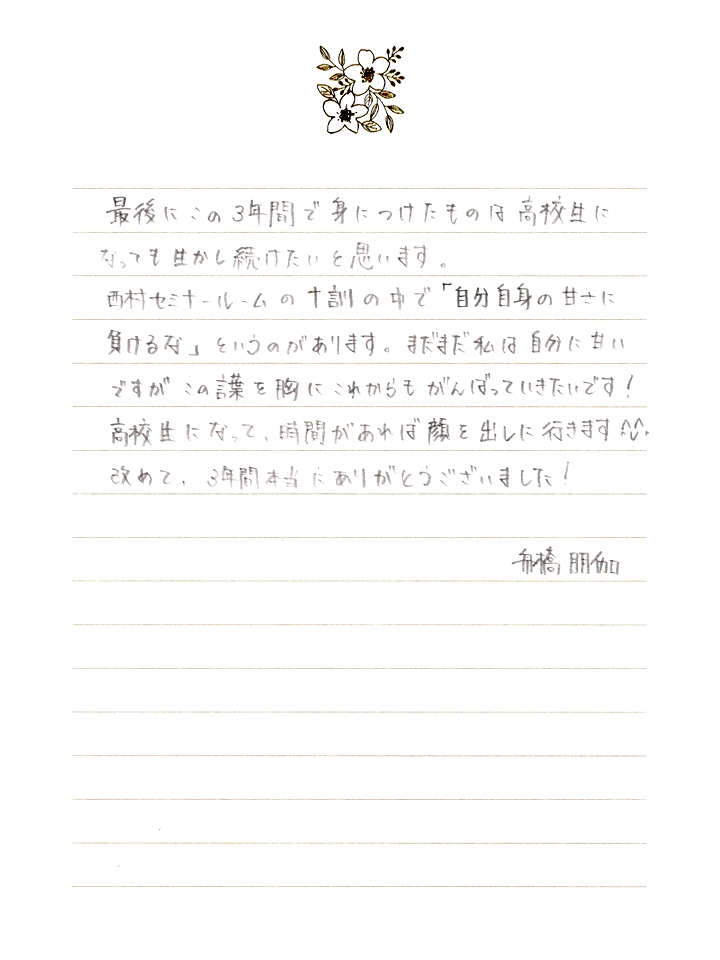 最後にこの3年間で身につけたものは高校生に
なっても生かし続けたいと思います。
西村セミナールームの十訓の中で「自分自身の甘さに
負けるな」というのがあります。まだまだ私は自分に甘い
ですがこの言葉を胸にこれからもがんばっていきたいです!
高校生になって、時間があれば顔を出しに行きます^^.
改めて、3年間本当にありがとうございました!
舟橋朋伽